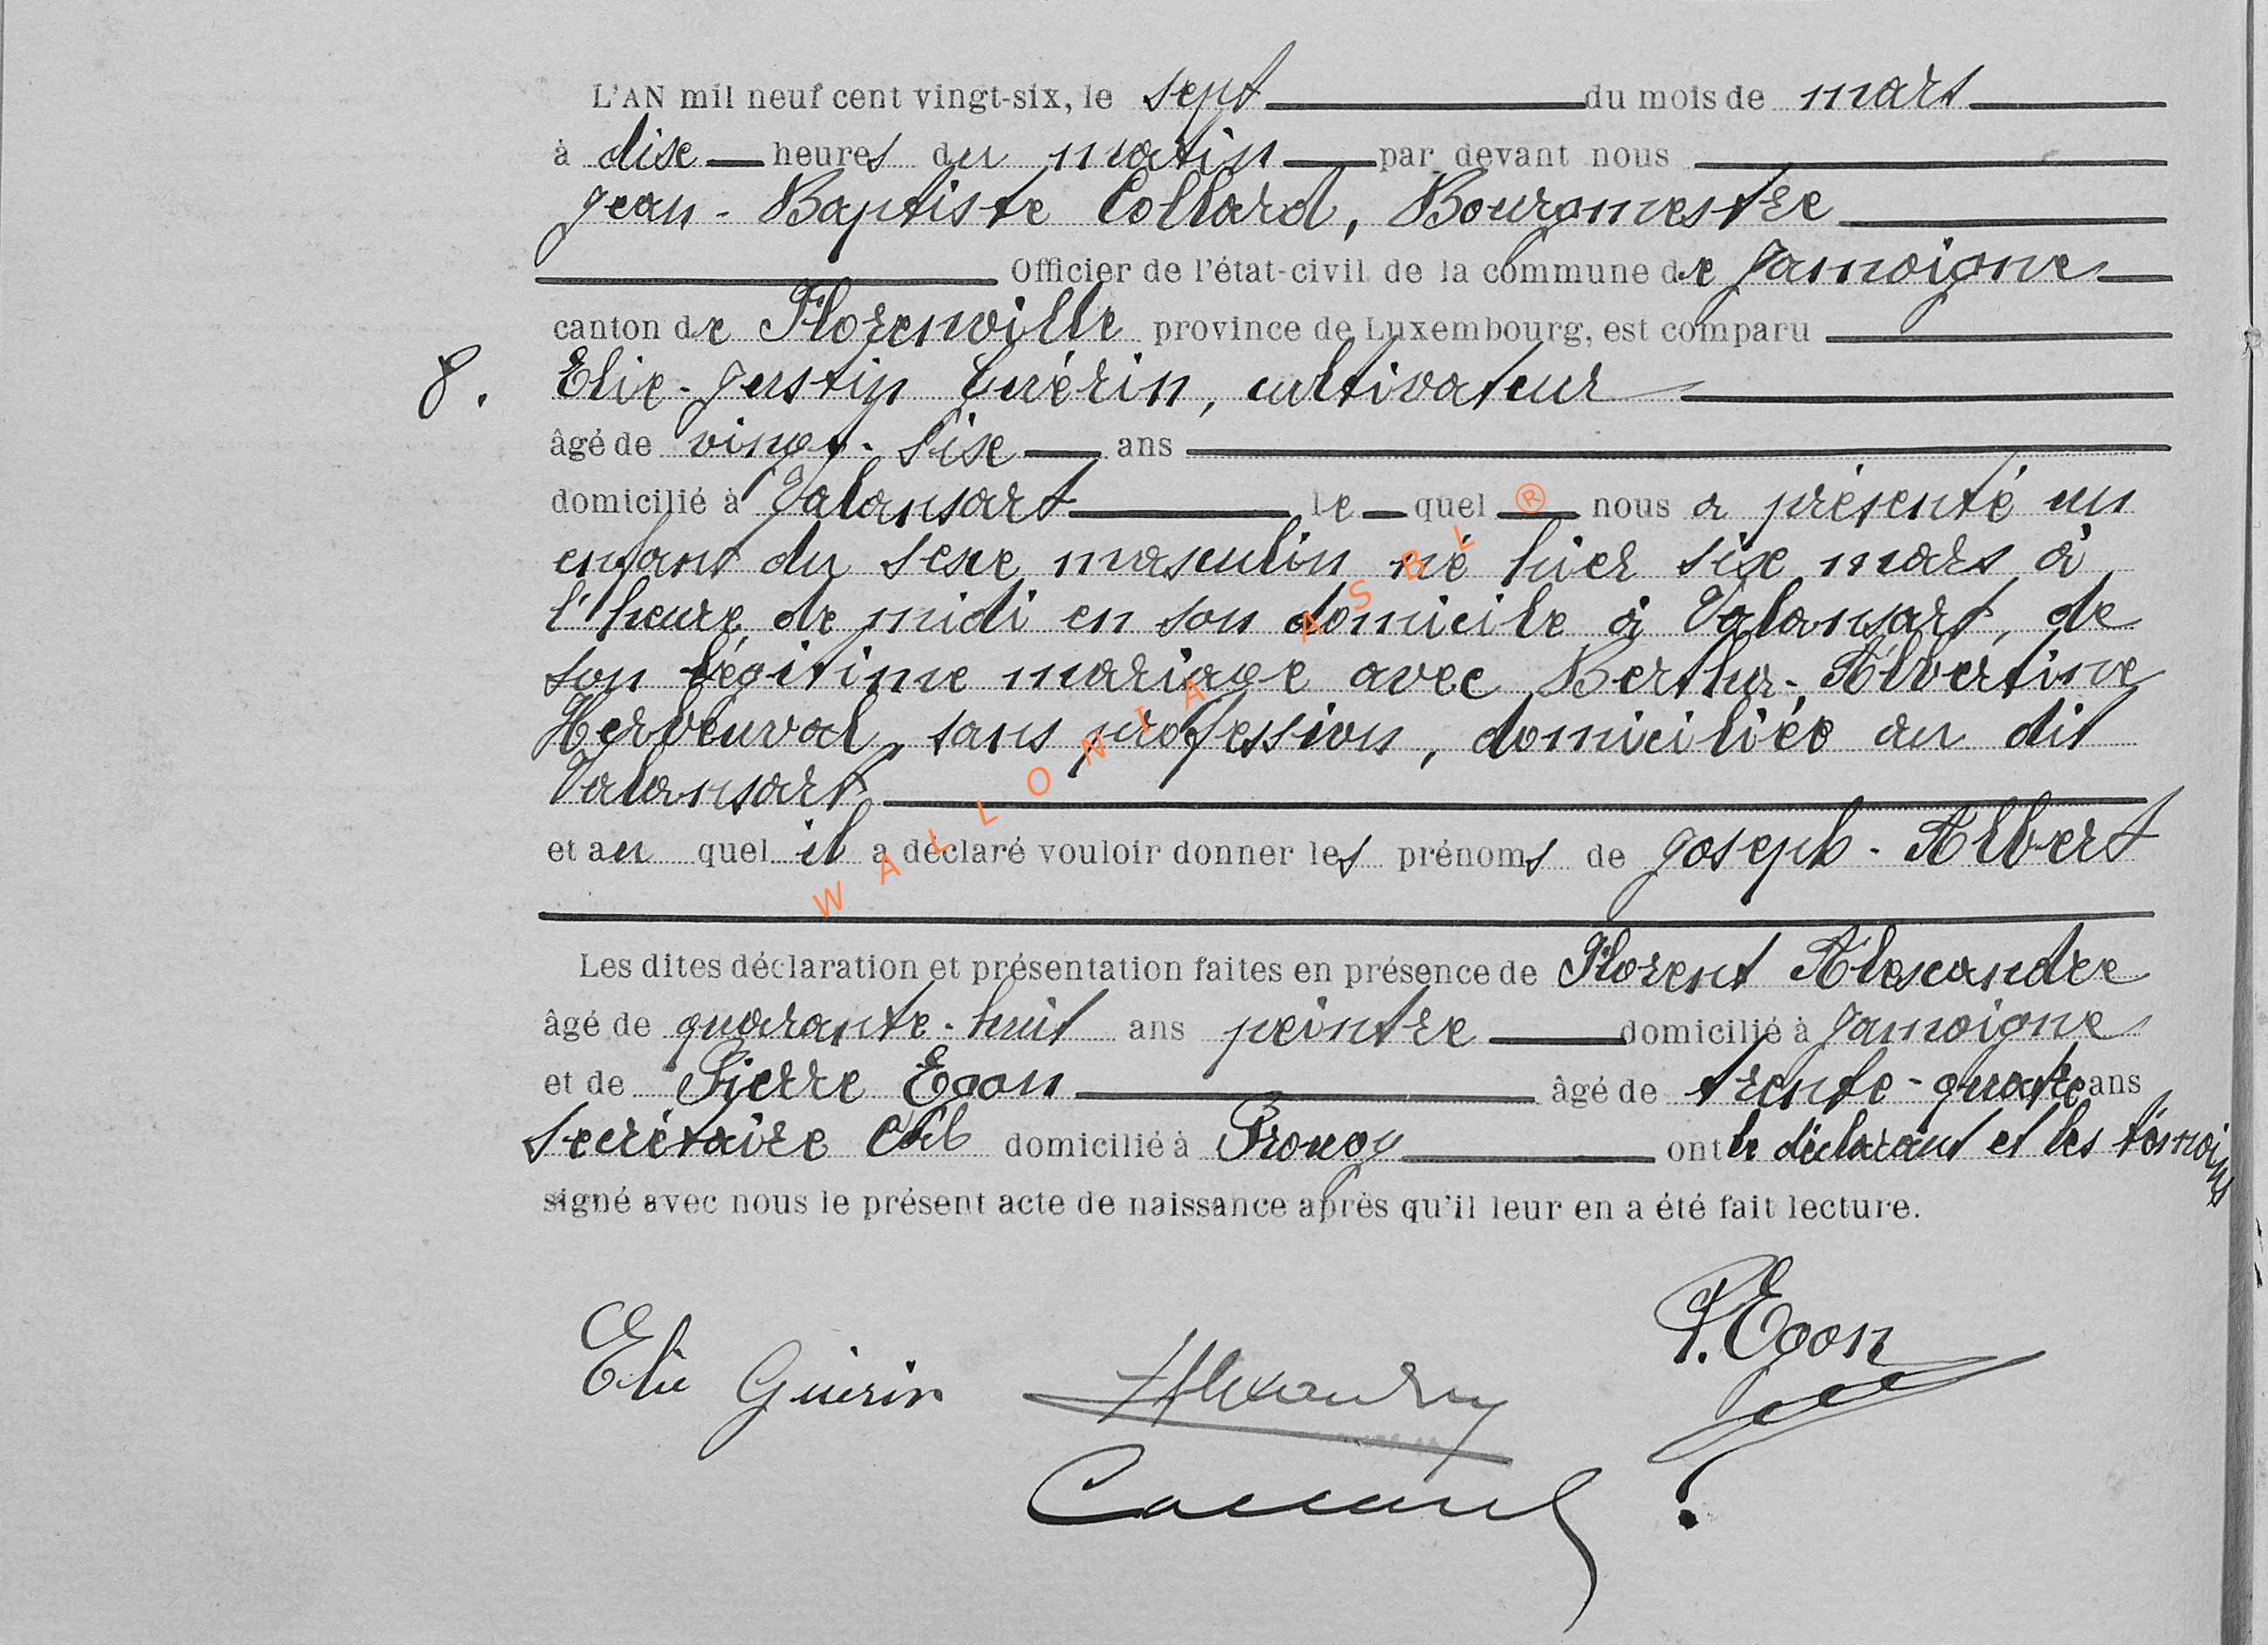 L'AN mil neuf cent vingt-six, le sept du mois de mars
à dix heures du matin par devant nous
Jean-Baptiste Collard, Bourgmestre
Officier de l'état-civil de la commune de Jamoigne
canton de Florenville province de Luxembourg, est comparu
8. Elie-Justin Guérin, cultivateur
âgé de vingt-six ans
domicilié à Valansart le quel nous a présenté un
enfant du sexe masculin né hier six mars à
l'heure de midi en son domicile à Valansart, de
son légitime mariage avec Bertha-Albertine
Herbeuval, sans profession, domiciliée au dit
Valansart
et au quel il a déclaré vouloir donner les prénoms de Joseph-Albert
Les dites déclaration et présentation faites en présence de Florent Alexandre
âgé de quarante-huit ans peintre domicilié à Jamoigne
et de Pierre Egon âgé de trente-quatre ans
secrétaire cal domicilié à Prouvy ont le déclarant et les témoins
signé avec nous le présent acte de naissance après qu'il leur en a été fait lecture.
P. Egon
Elie Guérin
Collard
WALLONIA ASBL ®